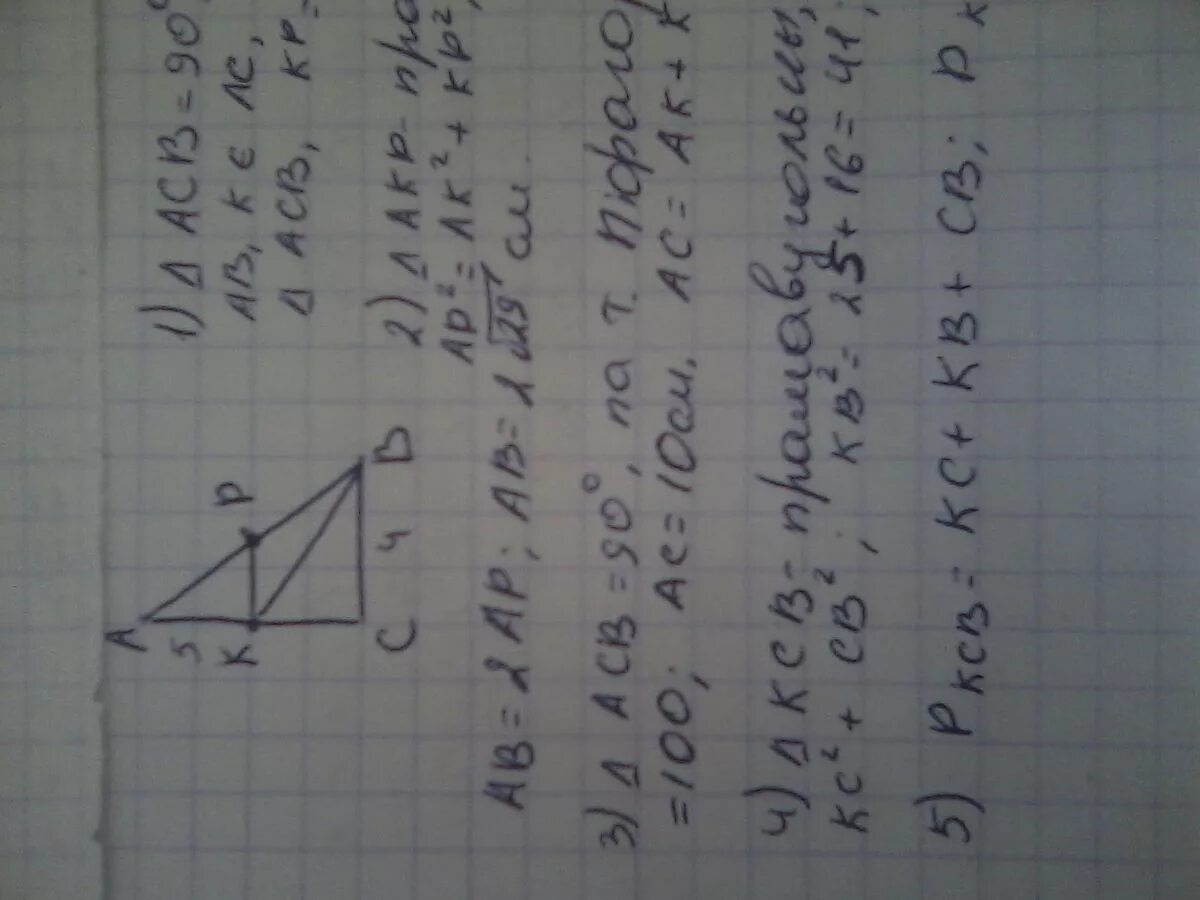 A
5
K
P
C
4
B
1) Δ ACB = 90°
AB, K ∈ AC,
Δ ACB, KP =
2) Δ AKP - пра
AP² = AK² + KP²,
AB = 2 AP; AB = 2√29 см.
3) Δ ACB = 90°, па т. Піфаго
= 100; AC = 10см. AC = AK + K
4) Δ KCB - прамавугольны,
KC² + CB²; KB² = 25 + 16 = 41;
5) P KCB = KC + KB + CB; P K